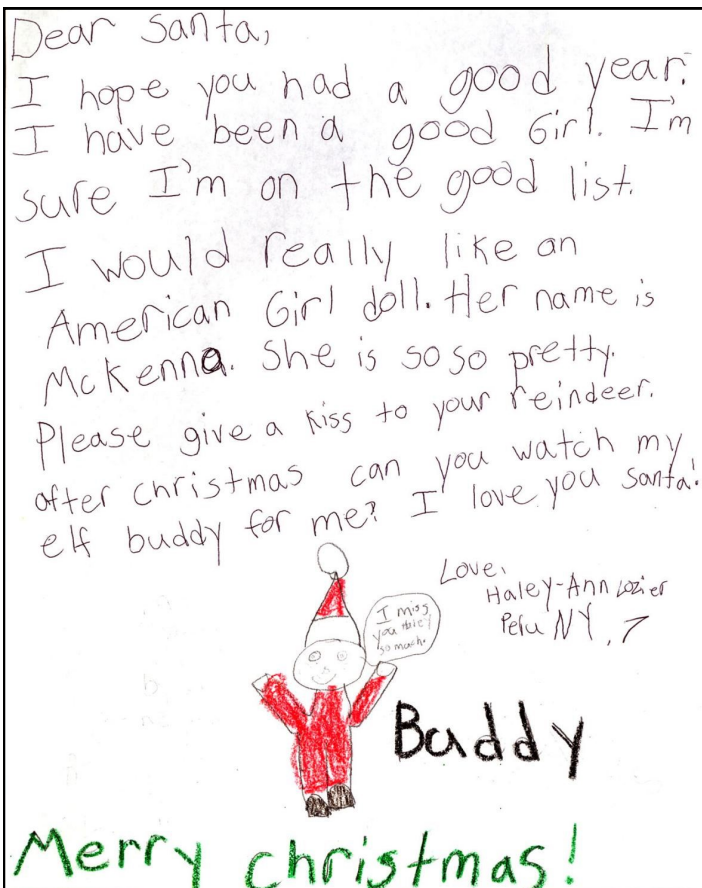 Dear Santa,
I hope you had a good year.
I have been a good Girl. I'm
sure I'm on the good list.
I would really like an
American Girl doll. Her name is
McKenna. She is so so pretty.
Please give a kiss to your reindeer.
after christmas can you watch my
elf buddy for me? I love you Santa!
Love,
Haley-Ann Lozier
Peru NY, 7
I miss
you
so much.
Buddy
Merry christmas!